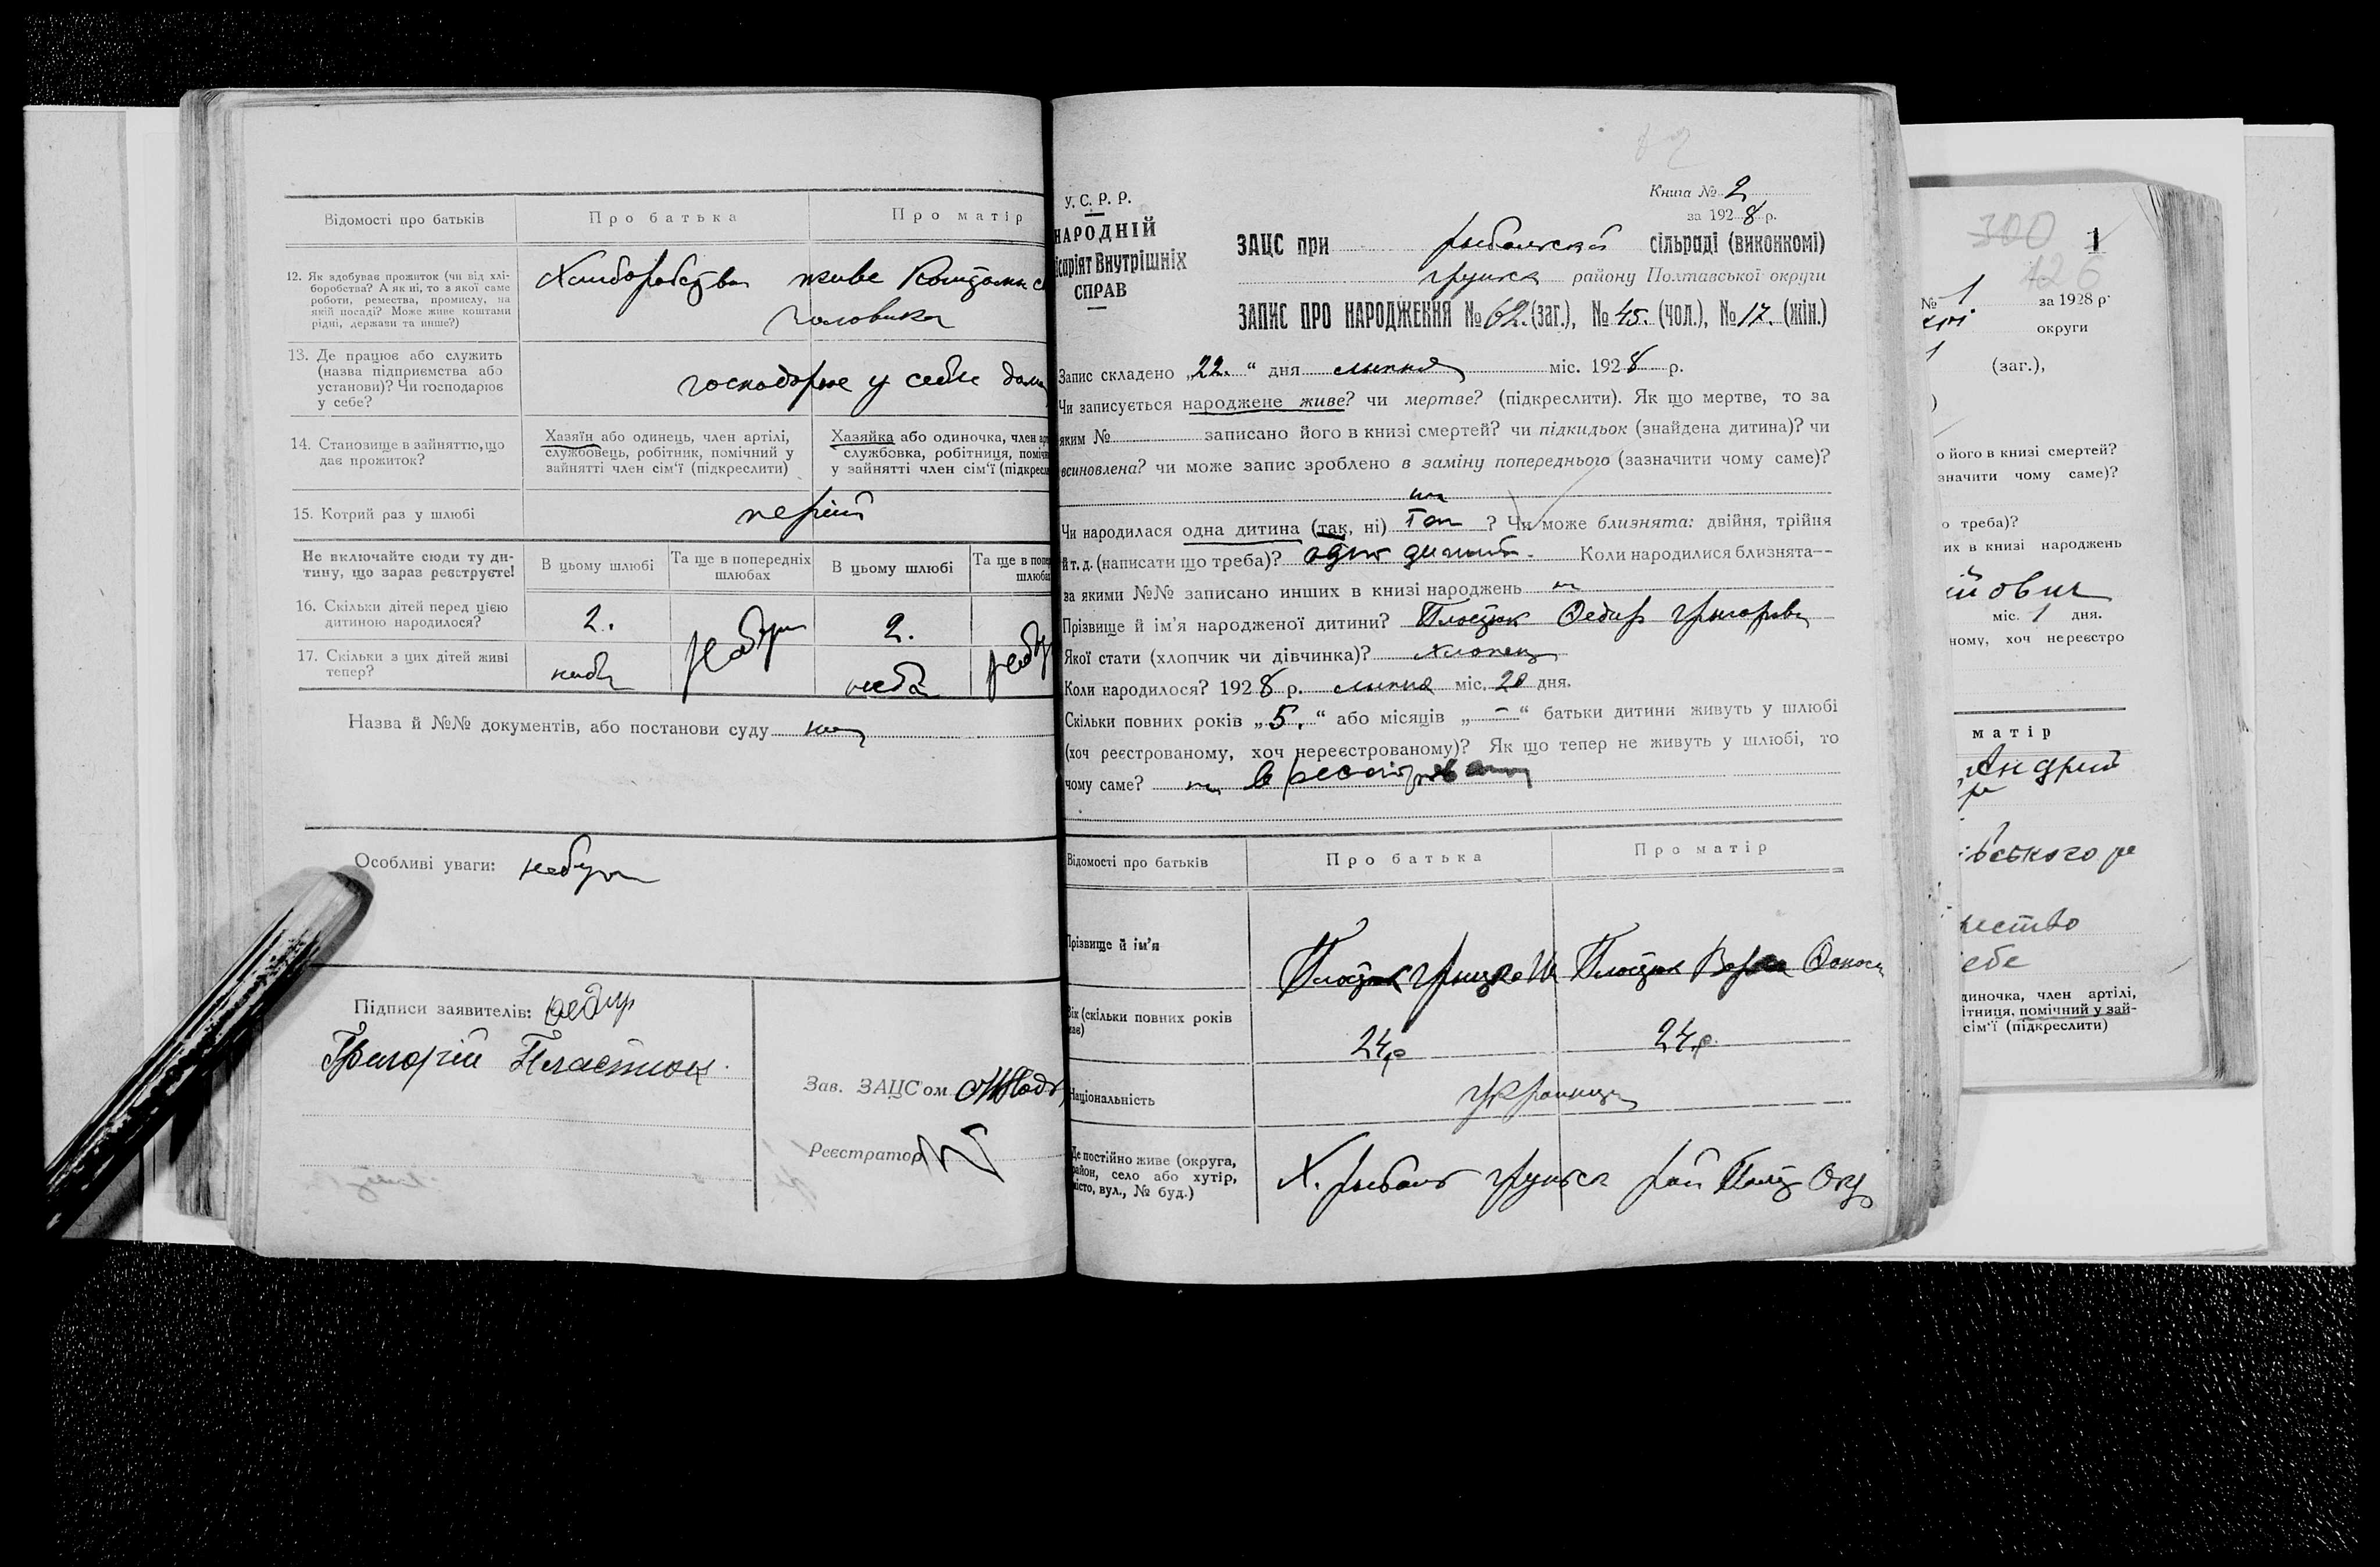 Відомості про батьків
Про батька
Про матір
12. Як здобуває прожиток (чи від хлі-
боробства? А як ні, то з якої саме
роботи, ремества, промислу, на
якій посаді? Може живе коштами
рідні, держави та инше?)
Хліборобство
живе Коштами
головика
13. Де працює або служить
(назва підприємства або
установи)? Чи господарює
у себе?
господарює у себе дома
14. Становище в зайняттю, що
дає прожиток?
Хазяїн або одинець, член артілі,
службовець, робітник, помічний у
зайнятті член сім'ї (підкреслити)
Хазяйка або одиночка, член арт
службовка, робітниця, поміч
у зайнятті член сім'ї (підкресл
15. Котрий раз у шлюбі
перший
Не включайте сюди ту ди-
тину, що зараз реєструєте!
В цьому шлюбі
Та ще в попередніх
шлюбах
В цьому шлюбі
Та ще в попе
шлюбах
16. Скільки дітей перед цією
дитиною народилося?
2.
небуло
2.
17. Скільки з цих дітей живі
тепер?
Назва й №№ документів, або постанови суду
Особливі уваги: небуло
Підписи заявителів: Федир
Григорій Пластюк
Зав. ЗАЦС'ом
Реєстратор
У. С. Р. Р.
НАРОДНІЙ
ісаріят Внутрішніх
СПРАВ
Книга № 2
за 1928 р.
ЗАЦС при рыбальской сільраді (виконкомі)
грунск району Полтавської округи
ЗАПИС ПРО НАРОДЖЕННЯ № 62. (заг.), № 45. (чол.), № 17. (жін.)
Запис складено „22." дня липня міс. 1928 р.
Чи записується народжене живе? чи мертве? (підкреслити). Як що мертве, то за
яким № записано його в книзі смертей? чи підкидьок (знайдена дитина)? чи
всиновлена? чи може запис зроблено в заміну попереднього (зазначити чому саме)?
Чи народилася одна дитина (так, ні) Так ? Чи може близнята: двійня, трійня
й т. д. (написати що треба)? одна дитина. Коли народилися близнята—
за якими №№ записано инших в книзі народжень
Прізвище й ім'я народженої дитини? Пластюк Федир Григоров
Якої стати (хлопчик чи дівчинка)? хлопец
Коли народилося? 1928 р. липня міс. 20 дня.
Скільки повних років „5." або місяців „—" батьки дитини живуть у шлюбі
(хоч реєстрованому, хоч нереєстрованому)? Як що тепер не живуть у шлюбі, то
чому саме?
Відомості про батьків
Про батька
Про матір
Прізвище й ім'я
Пластюк Грицко
Пластюк Верка
Вік (скільки повних років
має)
24 р
24 р.
Національність
українци
Де постійно живе (округа,
район, село або хутір,
місто, вул., № буд.)
Х. рыбал грунск рай Полт Окр
300
426
1
№ 1 за 1928 р.
округи
(заг.),
о його в книзі смертей?
значити чому саме)?
о треба)?
их в книзі народжень
йович
міс. 1 дня.
ному, хоч нереєстро
матір
Андрий
івського р
ество
себе
диночка, член артілі,
ітниця, помічний у зай-
сім'ї (підкреслити)